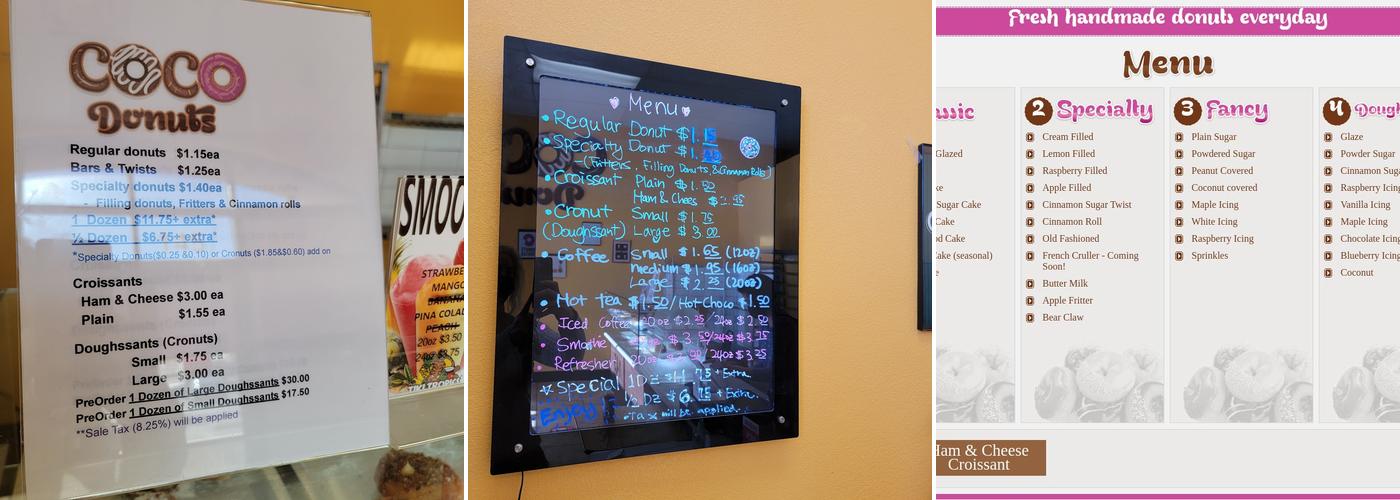 COCO
Donuts
Regular donuts $1.15ea
Bars & Twists $1.25ea
Specialty donuts $1.40ea
- Filling donuts, Fritters & Cinnamon rolls
1 Dozen $11.75+ extra*
½ Dozen $6.75+ extra*
*Specialty Donuts($0.25 &0.10) or Cronuts ($1.85&$0.60) add on
Croissants
Ham & Cheese $3.00 ea
Plain $1.55 ea
Doughssants (Cronuts)
Small $1.75 ea
Large $3.00 ea
PreOrder 1 Dozen of Large Doughssants $30.00
PreOrder 1 Dozen of Small Doughssants $17.50
**Sale Tax (8.25%) will be applied
SMOO
STRAWBE
MANGO
BANANA
PINA COLAD
PEACH
20oz $3.50
24oz $3.75
TIKI TROPIC
Menu
• Regular Donut $1.15
• Specialty Donut $1.
-(Fritters, Filling Donuts, & Cinnamon Rolls)
• Croissant Plain $1.50
Ham & Chees
• Cronut Small $1.75
(Doughssant) Large $3.00
• Coffee Small $1.65 (12oz)
medium $1.95 (16oz)
Large $2.25 (20oz)
• Hot tea $1.50/Hot Choco $1.50
• Iced Coffee 20oz $2.25/24oz $2.50
• Smothie 20oz $3.50/24oz $3.75
• Refresher 20oz /24oz $3.25
Special 1Dz $11.75 + Extra
½ Dz $6.75 + Extra.
Enjoy! • Tax will be applied.
Fresh handmade donuts everyday
Menu
assic
Glazed
ke
Sugar Cake
Cake
d Cake
ake (seasonal)
e
2 Specialty
Cream Filled
Lemon Filled
Raspberry Filled
Apple Filled
Cinnamon Sugar Twist
Cinnamon Roll
Old Fashioned
French Cruller - Coming
Soon!
Butter Milk
Apple Fritter
Bear Claw
3 Fancy
Plain Sugar
Powdered Sugar
Peanut Covered
Coconut covered
Maple Icing
White Icing
Raspberry Icing
Sprinkles
4 Dough
Glaze
Powder Sugar
Cinnamon Suga
Raspberry Icing
Vanilla Icing
Maple Icing
Chocolate Icing
Blueberry Icing
Coconut
Ham & Cheese
Croissant